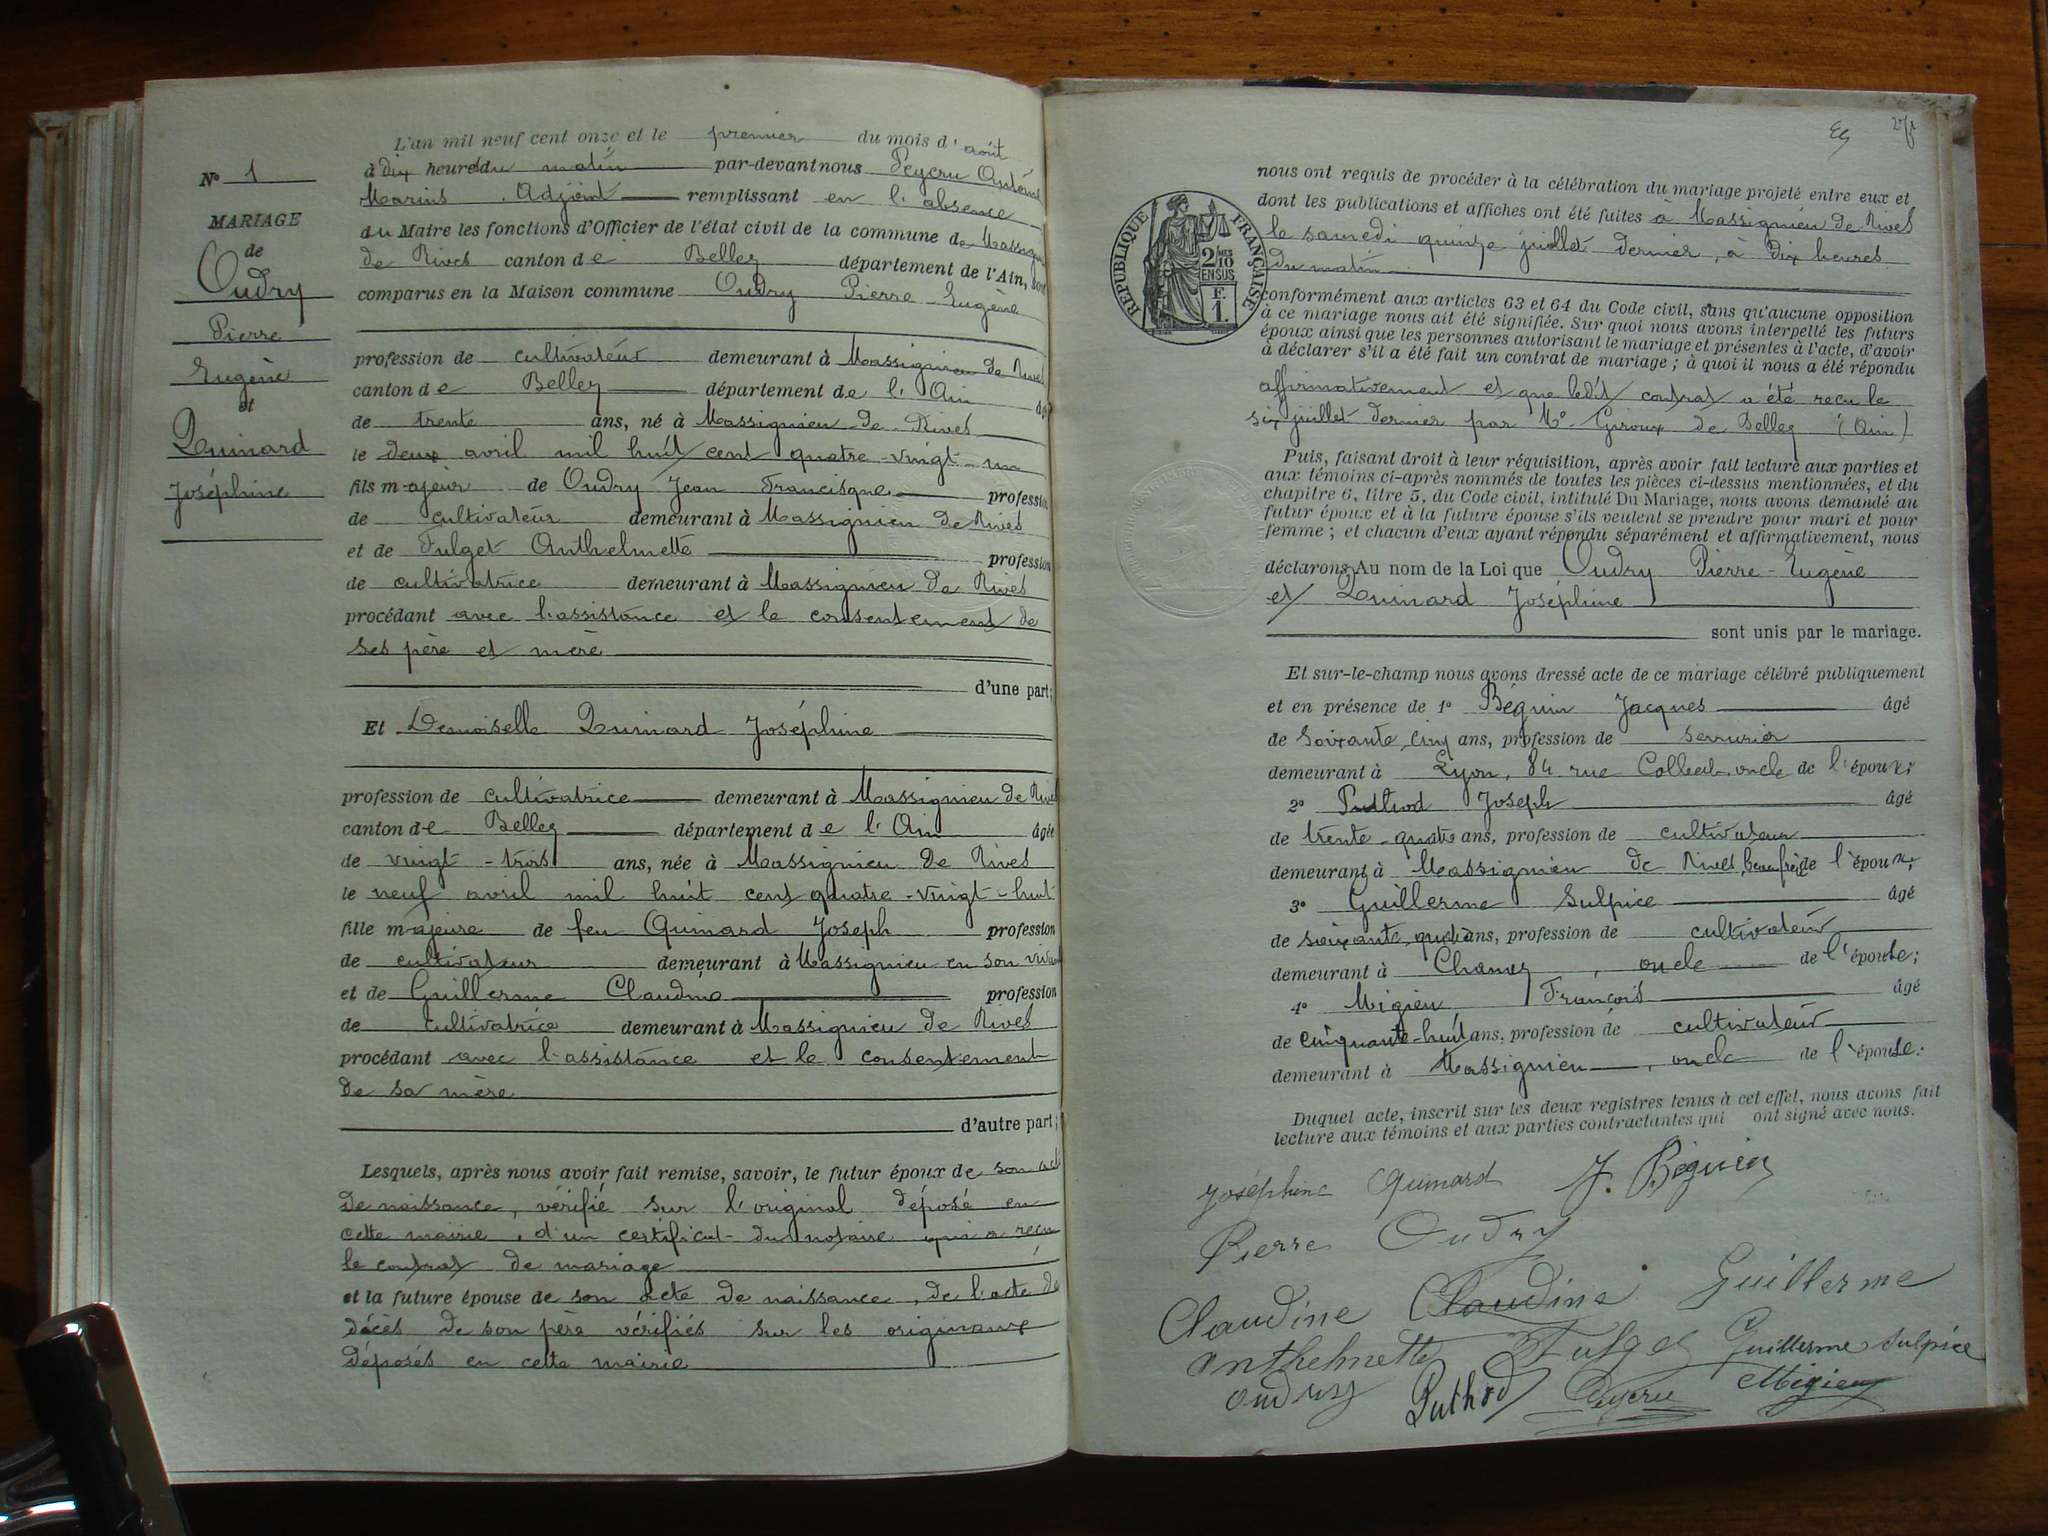 L'an mil neuf cent onze et le premier du mois d'août
à dix heures du matin par-devant nous Peyeru Antoine
Marius, Adjoint remplissant en l'absence
du Maire les fonctions d'Officier de l'état civil de la commune de Massignieu
de Rives canton de Belley département de l'Ain, sont
comparus en la Maison commune Oudry Pierre Eugène
profession de cultivateur demeurant à Massignieu de Rives
canton de Belley département de l'Ain
de trente ans, né à Massignieu de Rives
le deux avril mil huit cent quatre-vingt-un
fils majeur de Oudry Jean Francisque profession
de cultivateur demeurant à Massignieu de Rives
et de Fulget Anthelmette profession
de cultivatrice demeurant à Massignieu de Rives
procédant avec l'assistance et le consentement de
ses père et mère
d'une part;
Et Demoiselle Quinard Joséphine
profession de cultivatrice demeurant à Massignieu de Rives
canton de Belley département de l'Ain âgée
de vingt-trois ans, née à Massignieu de Rives
le neuf avril mil huit cent quatre-vingt-huit
fille majeure de feu Quinard Joseph profession
de cultivateur demeurant à Massignieu en son vivant
et de Guillerme Claudine profession
de cultivatrice demeurant à Massignieu de Rives
procédant avec l'assistance et le consentement
de sa mère
d'autre part;
Lesquels, après nous avoir fait remise, savoir, le futur époux de son acte
de naissance, vérifié sur l'original déposé en
cette mairie, d'un certificat du notaire qui a reçu
le contrat de mariage
et la future épouse de son acte de naissance, de l'acte de
décès de son père vérifiés sur les originaux
déposés en cette mairie
N° 1
MARIAGE
de
Oudry
Pierre
Eugène
et
Quinard
Joséphine
nous ont requis de procéder à la célébration du mariage projeté entre eux et
dont les publications et affiches ont été faites à Massignieu de Rives
le samedi quinze juillet dernier, à dix heures
du matin
conformément aux articles 63 et 64 du Code civil, sans qu'aucune opposition
à ce mariage nous ait été signifiée. Sur quoi nous avons interpellé les futurs
époux ainsi que les personnes autorisant le mariage et présentes à l'acte, d'avoir
à déclarer s'il a été fait un contrat de mariage; à quoi il nous a été répondu
affirmativement et que ledit contrat a été reçu le
six juillet dernier par Me Giroux de Belley (Ain)
Puis, faisant droit à leur réquisition, après avoir fait lecture aux parties et
aux témoins ci-après nommés de toutes les pièces ci-dessus mentionnées, et du
chapitre 6, titre 5, du Code civil, intitulé Du Mariage, nous avons demandé au
futur époux et à la future épouse s'ils veulent se prendre pour mari et pour
femme; et chacun d'eux ayant répondu séparément et affirmativement, nous
déclarons Au nom de la Loi que Oudry Pierre-Eugène
et Quinard Joséphine
sont unis par le mariage.
Et sur-le-champ nous avons dressé acte de ce mariage célébré publiquement
et en présence de 1° Béguin Jacques âgé
de soixante cinq ans, profession de serrurier
demeurant à Lyon, 84 rue Colbert, oncle de l'époux;
2° Puthod Joseph âgé
de trente-quatre ans, profession de cultivateur
demeurant à Massignieu de Rives, beau frère de l'époux;
3° Guillerme Sulpice âgé
de soixante ans, profession de cultivateur
demeurant à Chanaz, oncle de l'épouse;
4° Migieu François âgé
de cinquante-huit ans, profession de cultivateur
demeurant à Massignieu, oncle de l'épouse.
Duquel acte, inscrit sur les deux registres tenus à cet effet, nous avons fait
lecture aux témoins et aux parties contractantes qui ont signé avec nous.
Joséphine Quinard J. Béguin
Pierre Oudry
Claudine Claudine Guillerme
Anthelmette Fulget Guillerme Sulpice
Oudry Puthod Peyeru Migieu
RÉPUBLIQUE FRANÇAISE
2 MES
10
EN SUS
F.
1.